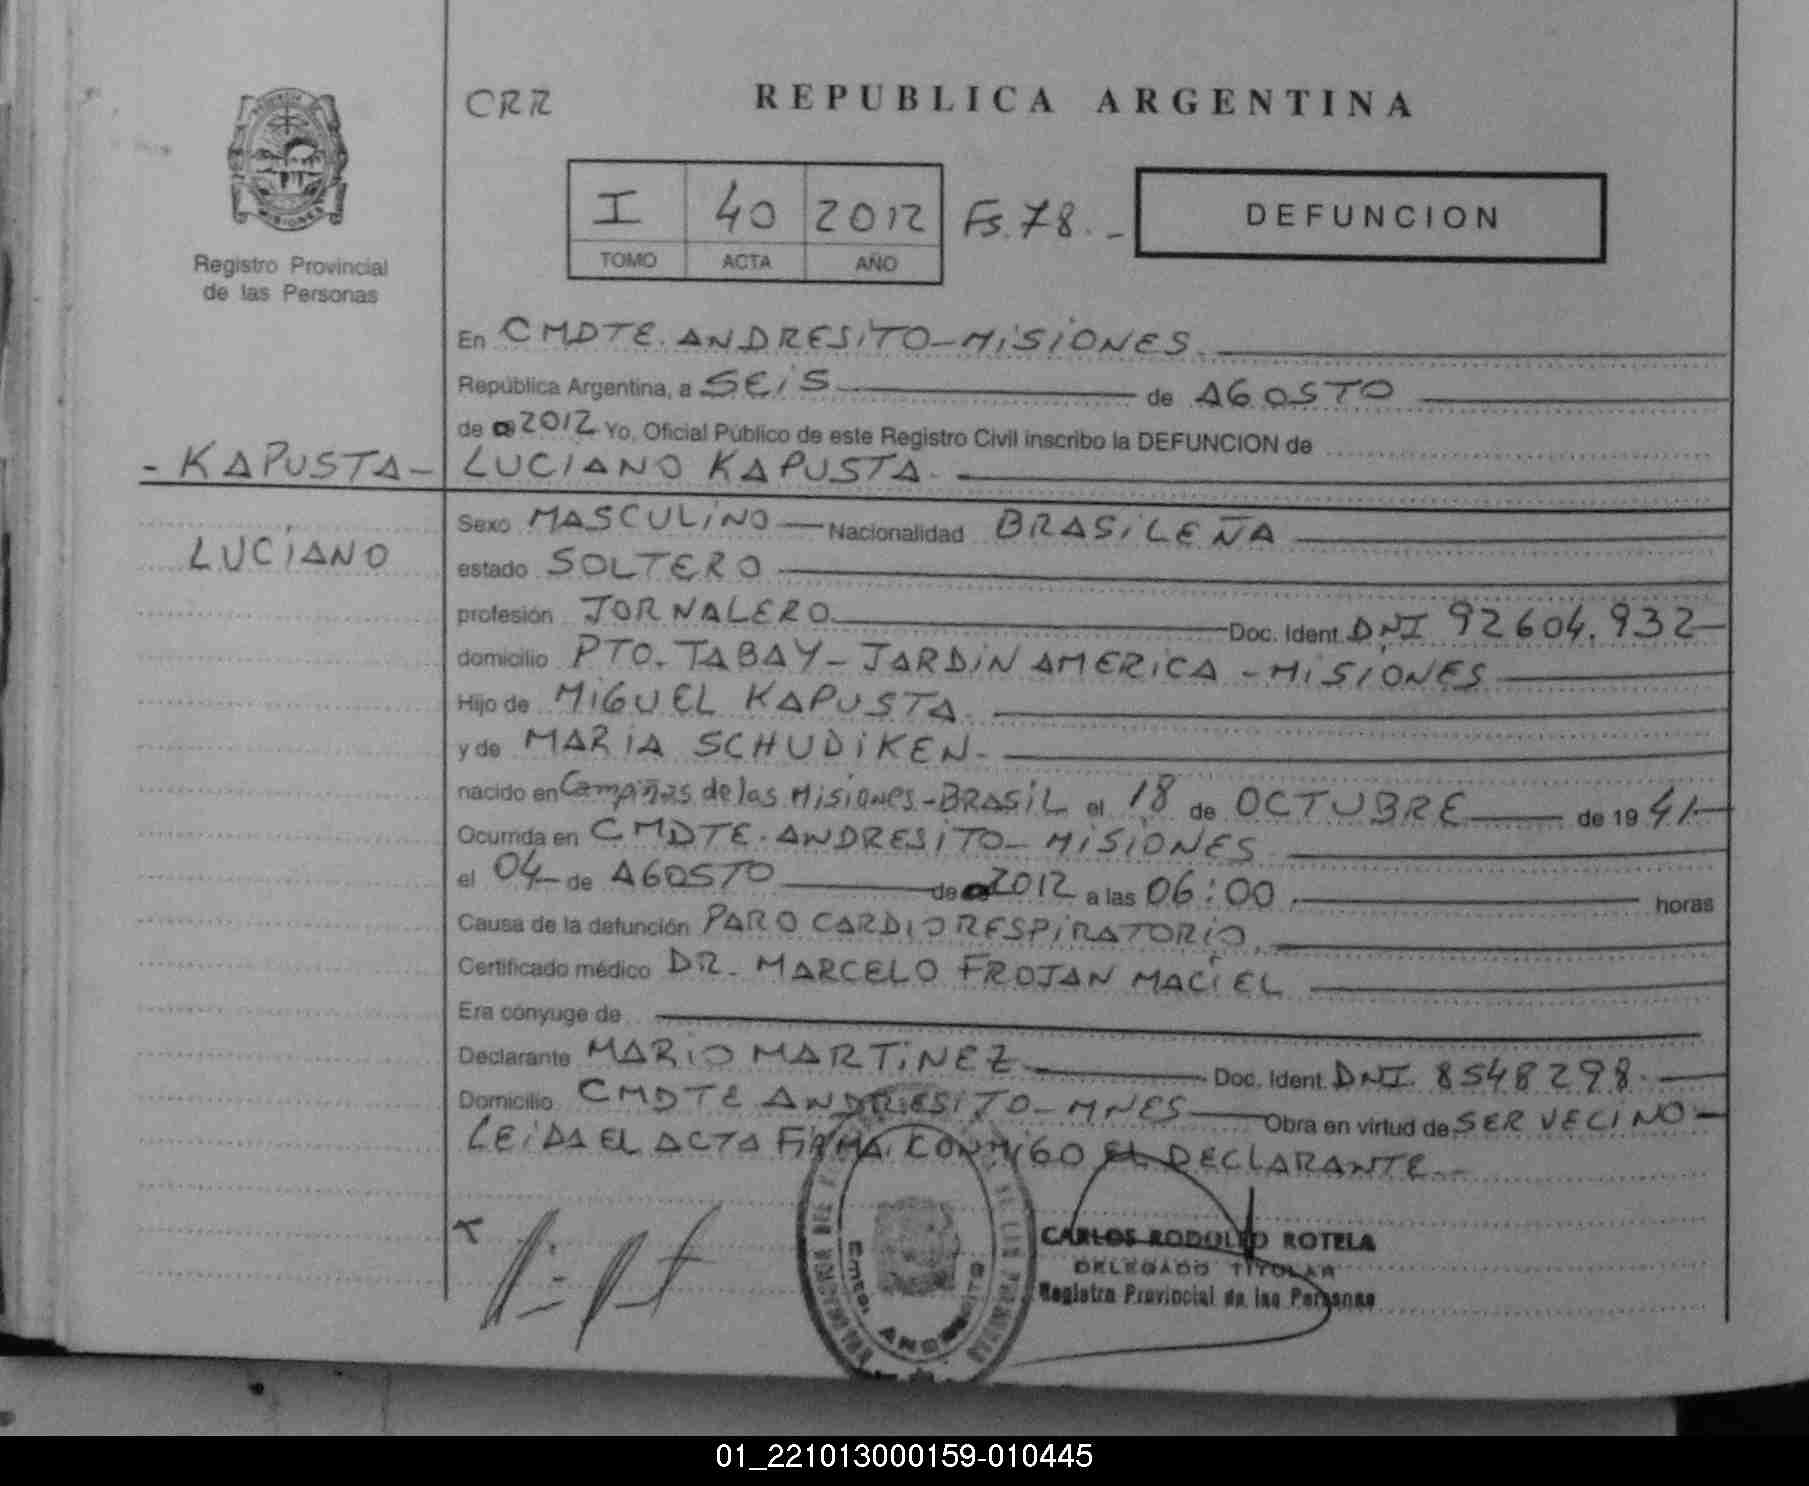 CRR
REPUBLICA ARGENTINA
I 40 2012 Fs. 78.-
TOMO ACTA AÑO
DEFUNCION
MISIONES
Registro Provincial
de las Personas
En CMDTE. ANDRESITO-MISIONES
República Argentina, a SEIS de AGOSTO
de 2012 Yo, Oficial Público de este Registro Civil inscribo la DEFUNCION de
- KAPUSTA - LUCIANO KAPUSTA.
Sexo MASCULINO Nacionalidad BRASILEÑA
LUCIANO
estado SOLTERO
profesión JORNALERO Doc. Ident. DNI 92604.932
domicilio PTO. TABAY - JARDIN AMERICA - MISIONES
Hijo de MIGUEL KAPUSTA.
y de MARIA SCHUDIKEN.
nacido en Campiñas de las Misiones - BRASIL el 18 de OCTUBRE de 19 41.
Ocurrida en CMDTE. ANDRESITO - MISIONES
el 04 de AGOSTO de 2012 a las 06:00 horas
Causa de la defunción PARO CARDIORESPIRATORIO.
Certificado médico DR. MARCELO FROJAN MACIEL
Era cónyuge de
Declarante MARIO MARTINEZ Doc. Ident. DNI. 8548298.
Domicilio CMDTE ANDRESITO - MNES Obra en virtud de SER VECINO
LEIDA EL ACTA FIRMA CONMIGO EL DECLARANTE.-
CARLOS RODOLFO ROTELA
DELEGADO TITULAR
Registro Provincial de las Personas
01_221013000159-010445